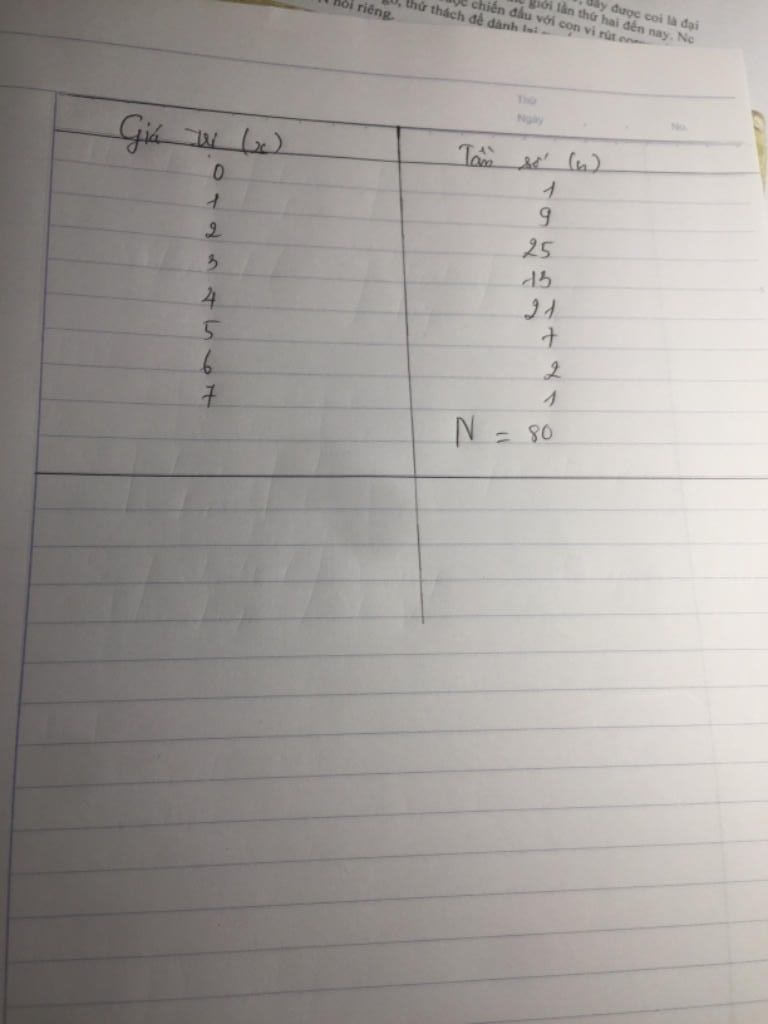 giới lần thứ hai đến nay. Nc
đây được coi là đại
chiến đấu với con vi rút
N nói riêng.
thử thách để dành lại
Thứ
Ngày
No.
Giá trị (x) Tần số (n)
0 1
1 9
2 25
3 13
4 21
5 7
6 2
7 1
N = 80